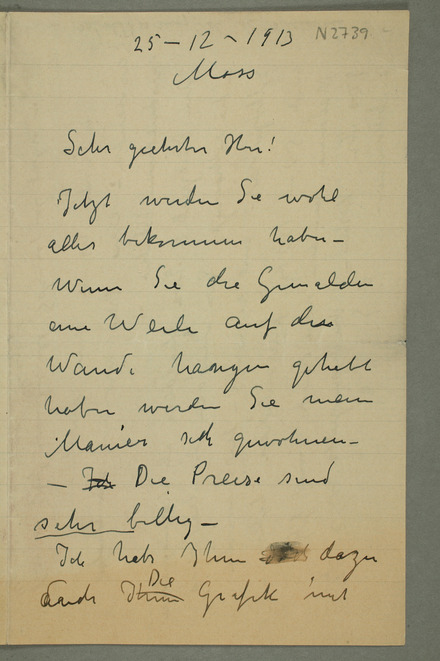 25-12-1913 N2739
Moss
Sehr geehrter Herr!
Jetzt werden Sie wohl
alles bekommen haben-
Wenn Sie die Gemalden
eine Weile auf die
Wande hangen gehabt
haben werden Sie mein
Manier sich gewohnen-
- Ich Die Preise sind
sehr billig-
Ich habe Ihnen dazu
Die
Grafik mit